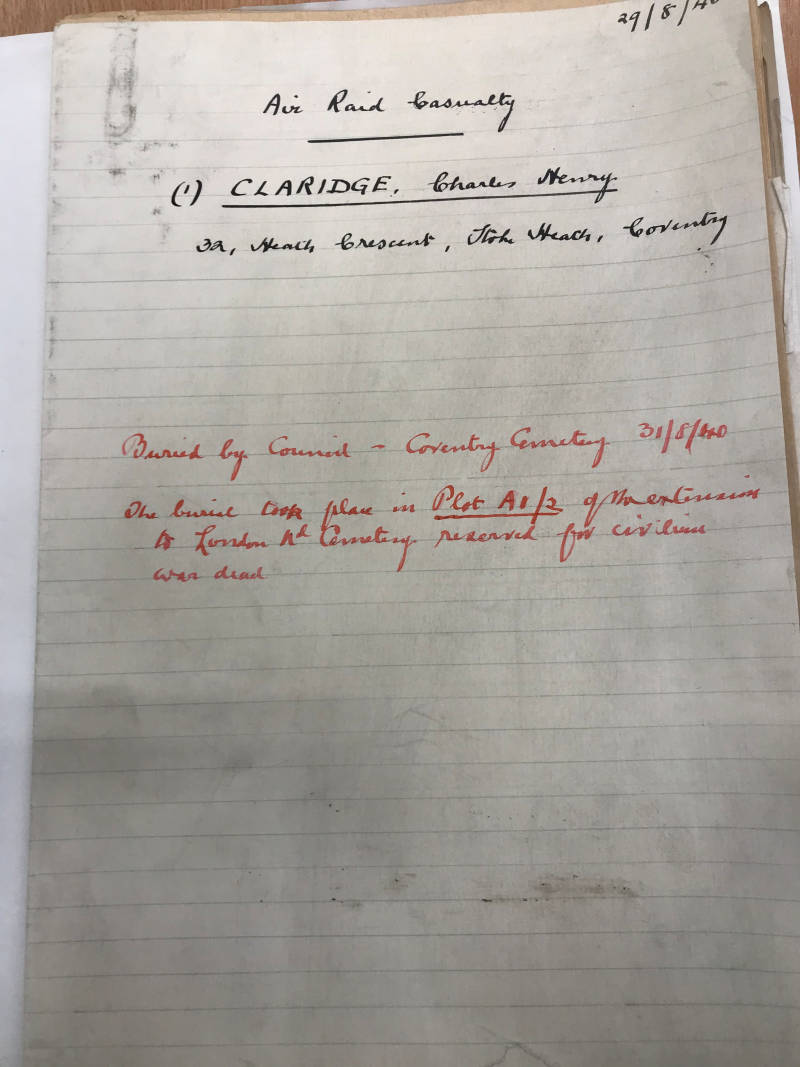 29/8/40
Air Raid Casualty
(1) CLARIDGE, Charles Henry
32, Heath Crescent, Stoke Heath, Coventry
Buried by Council - Coventry Cemetery 31/8/40
The burial took place in Plot A1/2 of the extension
to London Rd Cemetery reserved for civilian
war dead